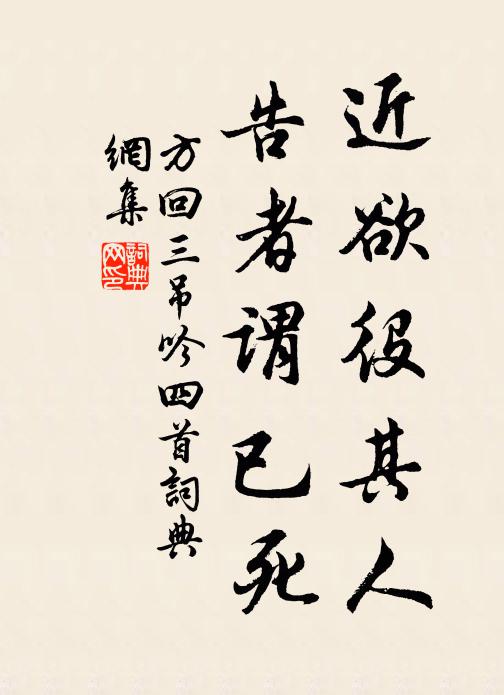 近欲役其人
告者谓已死
方回三吊吟四首詞典
網集
詞典網印